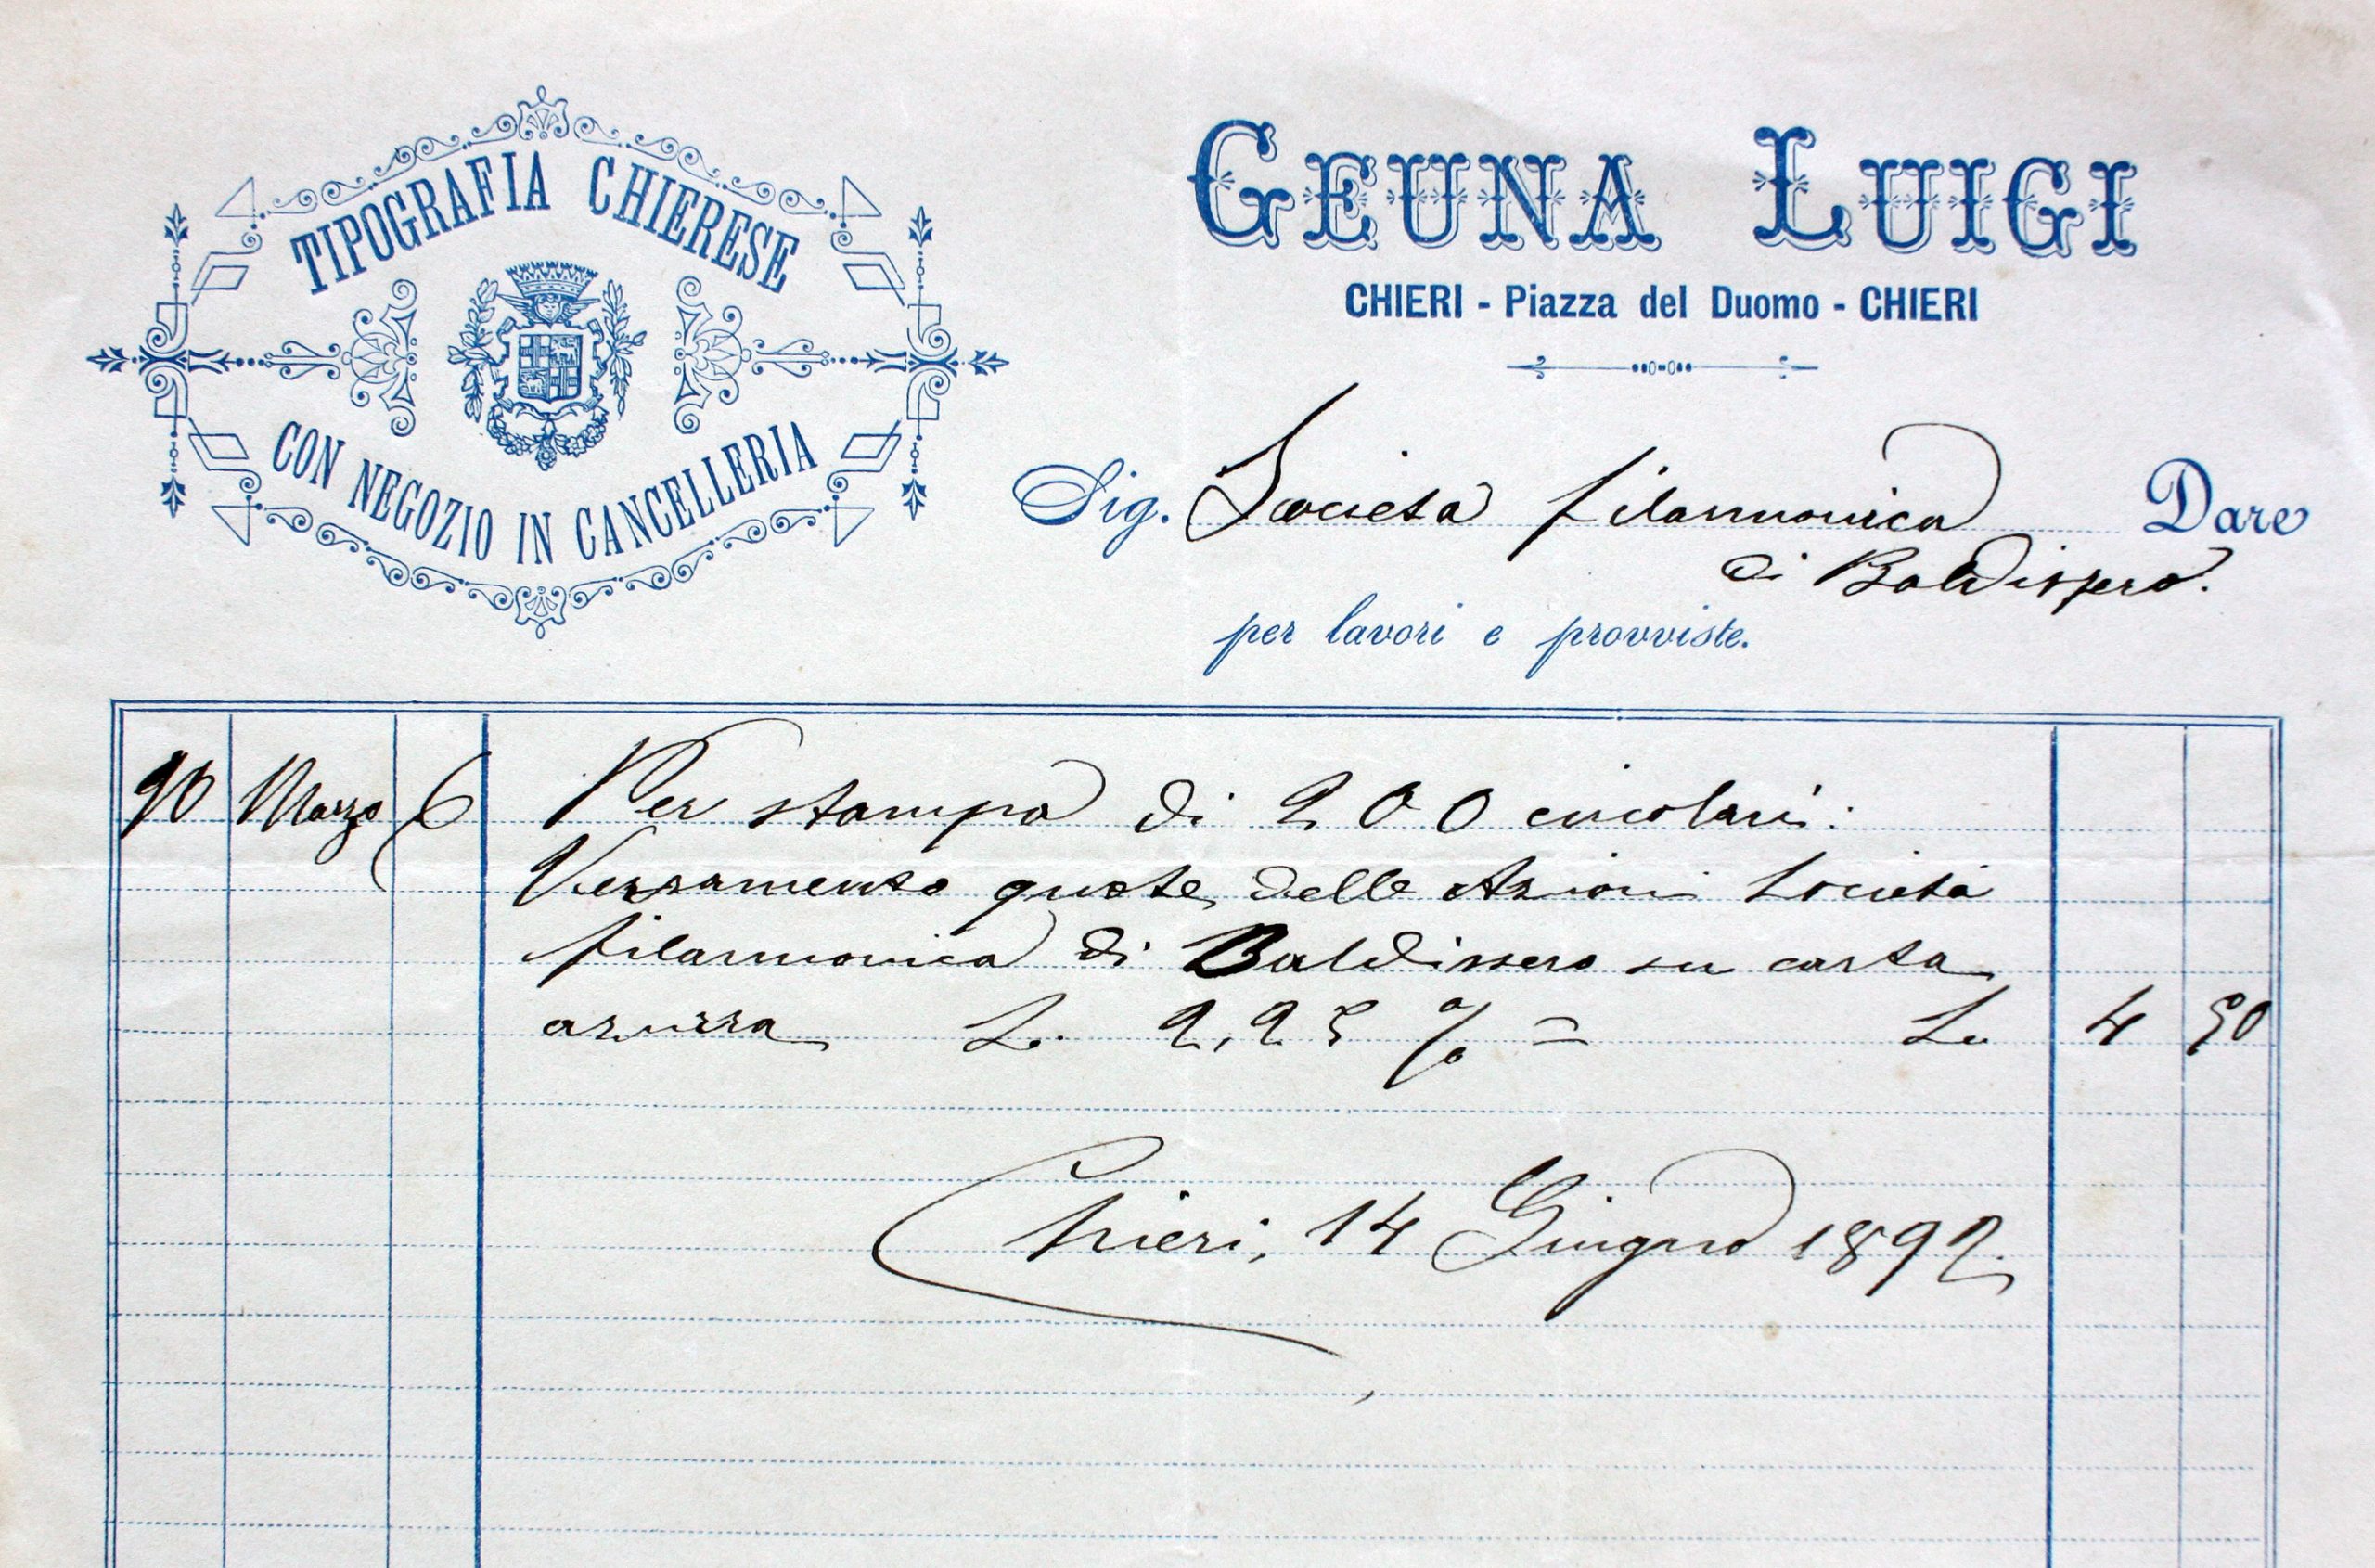 TIPOGRAFIA CHIERESE
CON NEGOZIO IN CANCELLERIA
GEUNA LUIGI
CHIERI - Piazza del Duomo - CHIERI
Sig. Società filarmonica Dare
di Baldissero.
per lavori e provviste.
90 Marzo 6 Per stampa di 200 circolari:
Versamento quote delle Azioni Società
filarmonica di Baldissero su carta
azurra L. 2,25 % = L. 4 50
Chieri, 14 Giugno 1892.